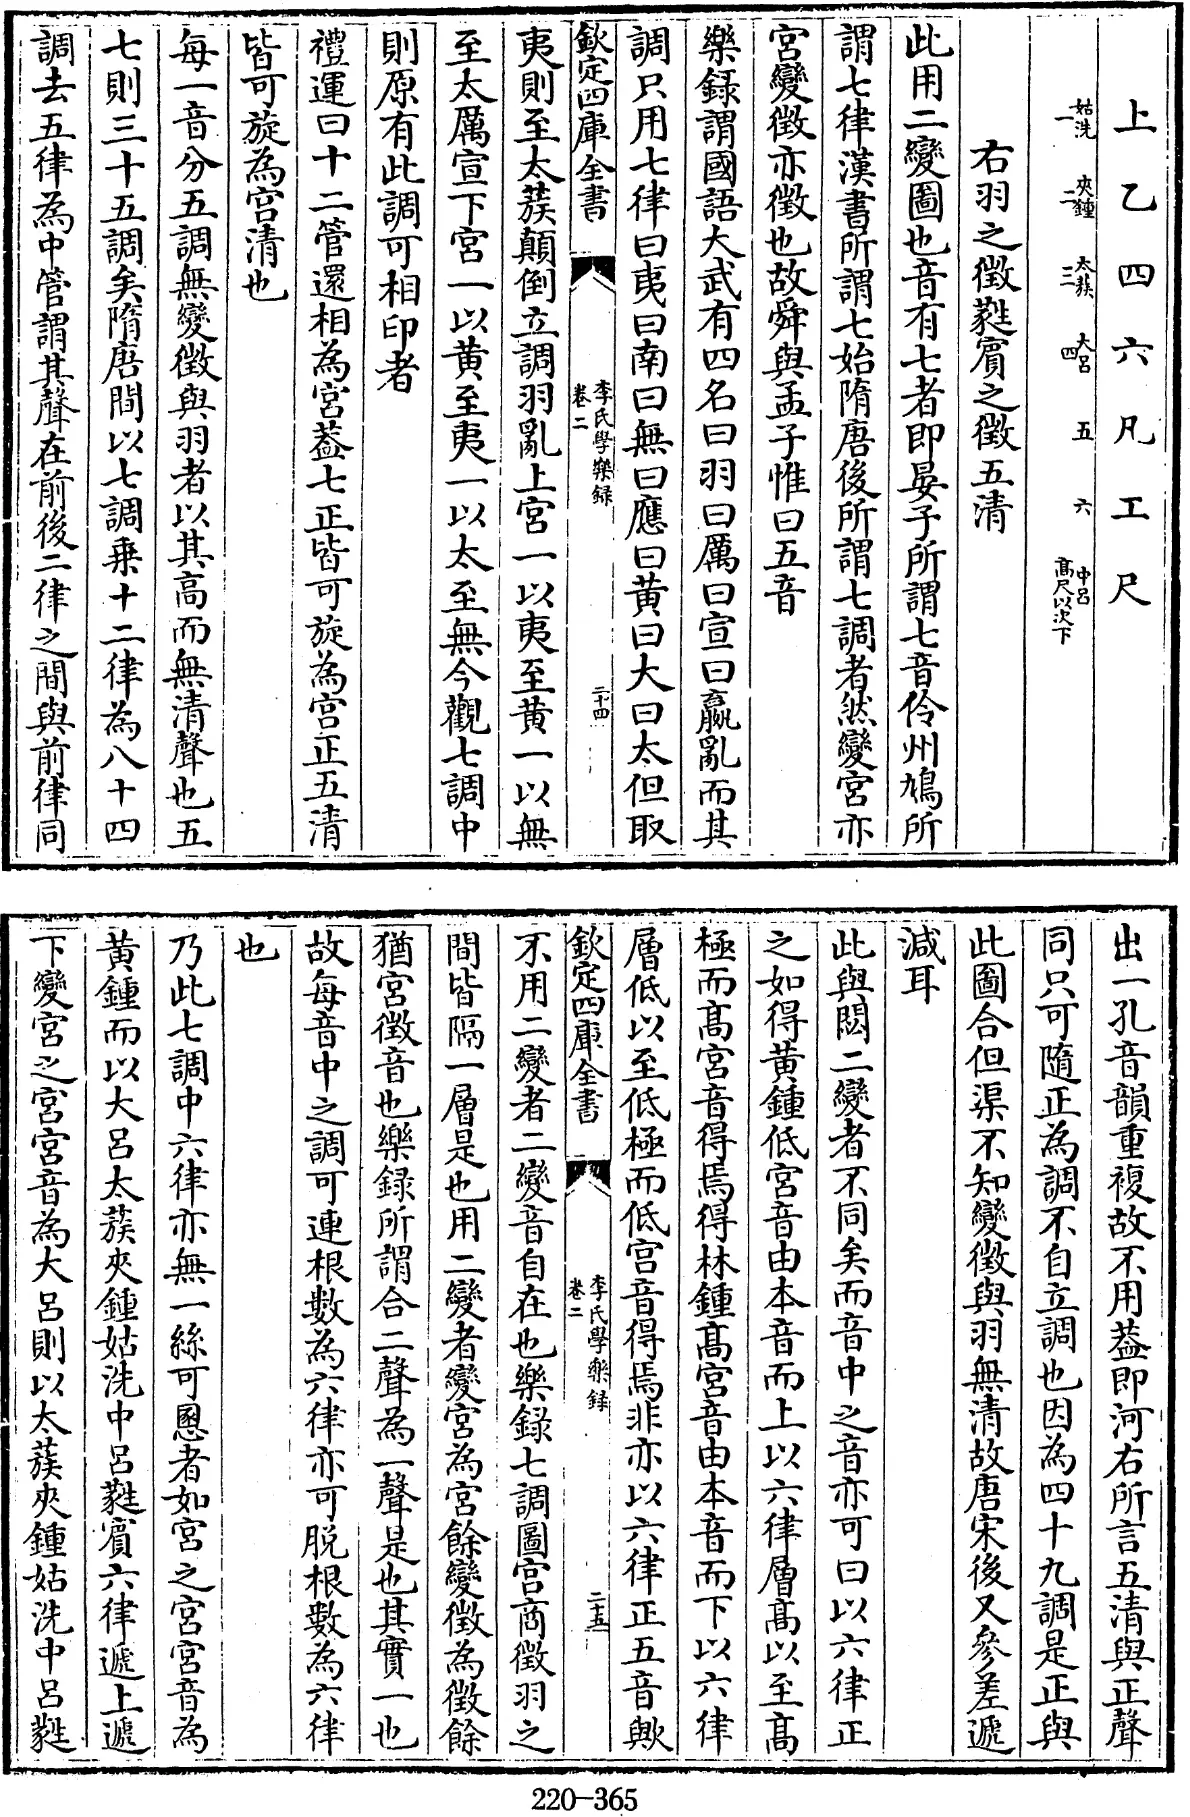 上乙四六凡工尺
姑洗一 夾鍾二 太蔟三 大呂四 五 六 中呂高尺以次下
右羽之徵蕤賓之徵五清
此用二變圖也音有七者即晏子所謂七音伶州鳩所
謂七律漢書所謂七始隋唐後所謂七調者然變宮亦
宮變徵亦徵也故舜與孟子惟曰五音
樂録謂國語大武有四名曰羽曰厲曰宣曰嬴亂而其
調只用七律曰夷曰南曰無曰應曰黄曰大曰太但取
欽定四庫全書 李氏學樂録 卷二 二十四
夷則至太蔟顛倒立調羽亂上宮一以夷至黄一以無
至太厲宣下宮一以黄至夷一以太至無今觀七調中
則原有此調可相印者
禮運曰十二管還相為宮葢七正皆可旋為宮正五清
皆可旋為宮清也
每一音分五調無變徵與羽者以其高而無清聲也五
七則三十五調矣隋唐間以七調乗十二律為八十四
調去五律為中管謂其聲在前後二律之間與前律同
出一孔音韻重複故不用葢即河右所言五清與正聲
同只可隨正為調不自立調也因為四十九調是正與
此圖合但渠不知變徵與羽無清故唐宋後又參差遞
減耳
此與閟二變者不同矣而音中之音亦可曰以六律正
之如得黄鍾低宮音由本音而上以六律層高以至高
極而高宮音得焉得林鍾高宮音由本音而下以六律
層低以至低極而低宮音得焉非亦以六律正五音歟
欽定四庫全書 李氏學樂録 卷二 二十五
不用二變者二變音自在也樂録七調圖宮商徵羽之
間皆隔一層是也用二變者變宮為宮餘變徵為徵餘
猶宮徵音也樂録所謂合二聲為一聲是也其實一也
故每音中之調可連根數為六律亦可脱根數為六律
也
乃此七調中六律亦無一絲可慁者如宮之宮宮音為
黄鍾而以大呂太蔟夾鍾姑洗中呂蕤賓六律遞上遞
下變宮之宮宮音為大呂則以太蔟夾鍾姑洗中呂蕤
220-365